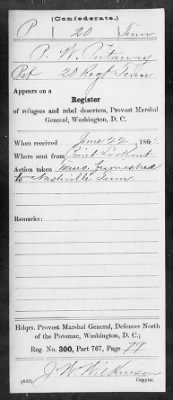 (Confederate.)
P 20 Tenn
P. W. Putaway
Pvt 20 Regt Tenn
Appears on a
Register
of refugees and rebel deserters, Provost Marshal
General, Washington, D. C.
When received June 22 186
Where sent from Point Lookout
Action taken Trans. furnished
to Nashville Tenn
Remarks:
Hdqrs. Provost Marshal General, Defences North
of the Potomac, Washington, D. C.;
Reg. No. 300, Part 767, Page 77
J. W. Wilkinson
Copyist.